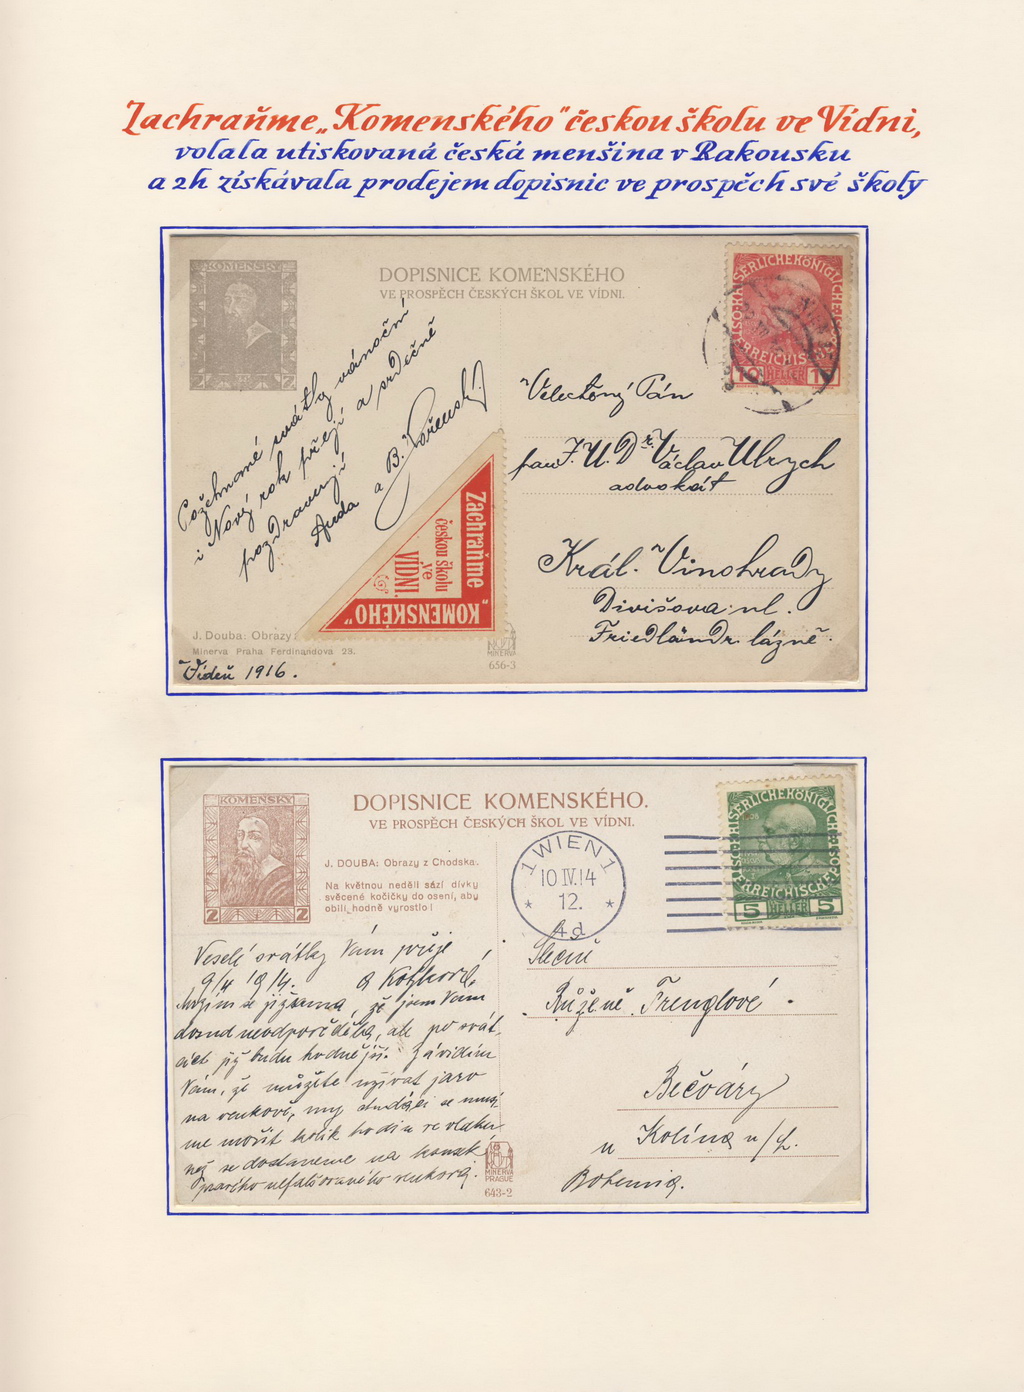 Zachraňme „Komenského" českou školu ve Vídni,
volala utiskovaná česká menšina v Rakousku
a 2h získávala prodejem dopisnic ve prospěch své školy
KOMENSKY
2 2
DOPISNICE KOMENSKÉHO
VE PROSPĚCH ČESKÝCH ŠKOL VE VÍDNI.
KAISERLICHE KÖNIGLICHE ÖSTERREICHISCHE
10 HELLER 10
Požehnané svátky vánoční
i Nový rok přejí a srdečně
pozdravují
Anda a B.
Zachraňme
českou školu
ve
VÍDNI.
"KOMENSKÉHO"
Velectěný Pán
pan J.U.Dr. Václav Ulrych
advokát
Král. Vinohrady
Divišova ul.
Friedländr. lázně.
J. Douba: Obrazy
Minerva Praha Ferdinandova 23.
MINERVA
656-3
Vídeň 1916.
KOMENSKY
2 2
DOPISNICE KOMENSKÉHO.
VE PROSPĚCH ČESKÝCH ŠKOL VE VÍDNI.
J. DOUBA: Obrazy z Chodska.
Na květnou neděli sází dívky
svěcené kočičky do osení, aby
obilí hodně vyrostlo!
1 WIEN 1
10 IV.14
12.
* *
Ad
KAISERLICHE KÖNIGLICHE ÖSTERREICHISCHE
5 HELLER 5
Veselé svátky Vám přeje
9/4 1914.
že jsem Vám
dosud neodpověděla, ale po svát-
cích již budu hodnější. Závidím
Vám, že můžete užívat jaro
na venkově, my
se dostaneme na kousek
pravého nefalšovaného venkova.
Slečně
Růženě Trenglové
Bečváry
u Kolína n/L.
Bohemia.
MINERVA
PRAGUE
643-2